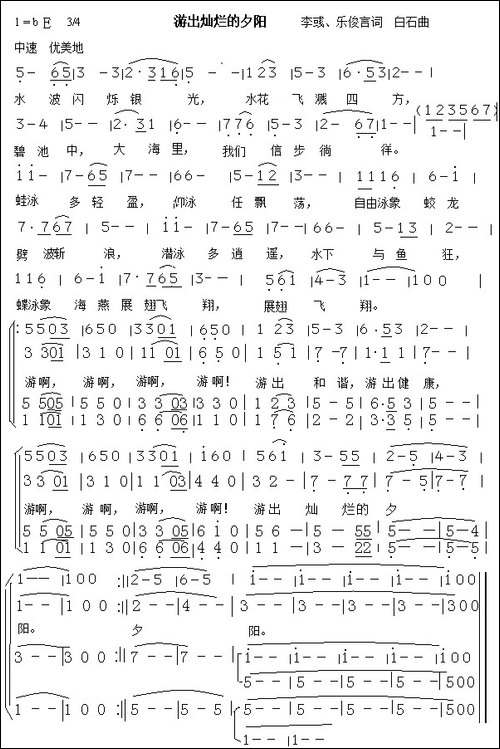 1=bE 3/4 游出灿烂的夕阳 李彧、乐俊言词 白石曲
中速 优美地
5- 65 |3 -3|2·316|5 - -|5-|123|5-3|6·53|2--|
水 波闪 烁银 光， 水花 飞溅四 方，
3-4|5--|2·31|6--|776|5-3|2-67|1--|(123567)|1--|
碧池中， 大海里， 我们 信步徜 徉。
i i-|7-65|7--|66-|5-12|3--|1116|6-i|
蛙泳 多轻盈， 仰泳 任飘 荡， 自由泳象 蛟龙
7·767|5--|i i-|6-57|7--|66-|5-13|2--|
劈 波斩 浪， 潜泳 多逍遥， 水下 与鱼 狂，
116|6-i|7·765|3--|561|4-3|1--|100|
蝶泳象 海燕展 翅飞 翔， 展翅 飞 翔。
5503|650|3301|650|1 23|5-3|6·53|2--|
3 301|310|11 01|650|1 51|7-7|1·11|7--|
游啊， 游啊， 游啊， 游啊！ 游出 和谐，游出健 康，
5 505|550|33 03|330|1 23|5-5|6·53|5--|
1 101|130|66 06|330|1 76|2-2|3·35|5--|
5503|650|3301|i60|56i|3-55|2-5|4-3|
3301|310|11 03|440|322|7-77|7-5|7-7|
游啊， 游啊， 游啊， 游啊！ 游出 灿 烂的 夕
5 5 05|550|33 05|6i0|56-|5-55|5--|5-4|
1 1 01|130|66 06|440|11-|3-22|5--|5-5|
1--|100:||2-5|6-5|i--|i--|i--|i--|i00|
1--|100:||2--|4--|3--|3--|3--|3--|300|
阳。 夕 阳。
3--|300:||7--|7--|i--|i--|i--|i--|i00
5--|5--|5--|5--|500
1--|100:||5--|5-5|5--|5--|5--|5--|500
1--|1--|